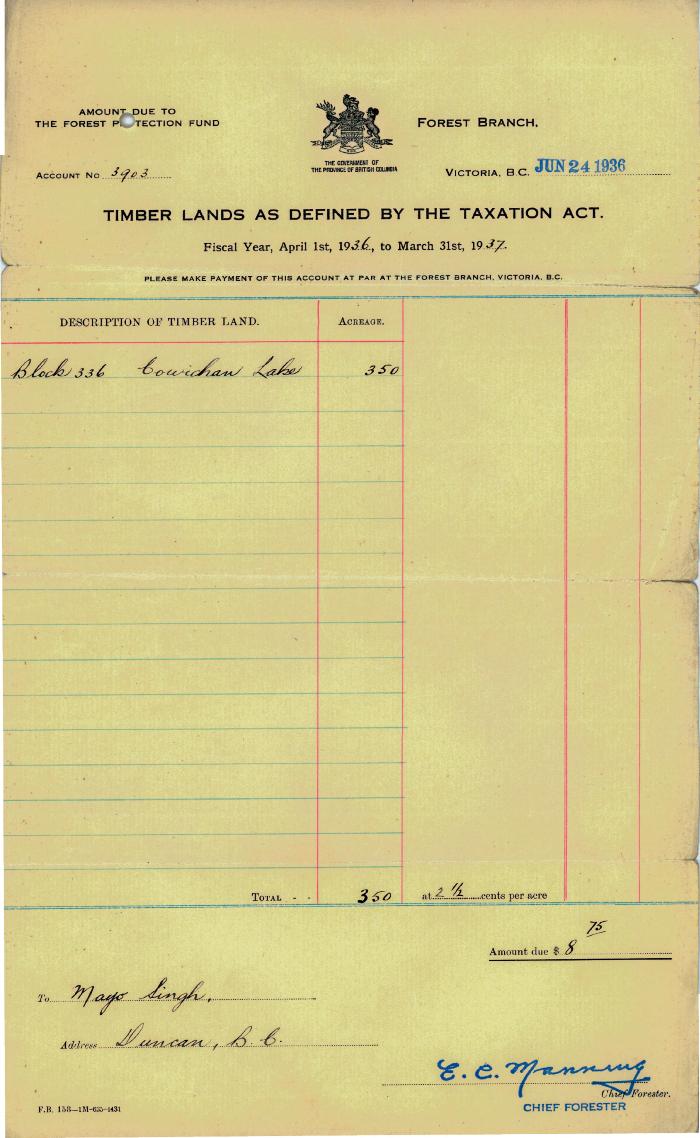 AMOUNT DUE TO
THE FOREST P TECTION FUND
FOREST BRANCH,
THE GOVERNMENT OF
THE PROVINCE OF BRITISH COLUMBIA
ACCOUNT NO 3903
VICTORIA, B.C. JUN 24 1936
TIMBER LANDS AS DEFINED BY THE TAXATION ACT.
Fiscal Year, April 1st, 1936, to March 31st, 1937.
PLEASE MAKE PAYMENT OF THIS ACCOUNT AT PAR AT THE FOREST BRANCH, VICTORIA, B.C.
DESCRIPTION OF TIMBER LAND. ACREAGE.
Block 336 Cowichan Lake 350
TOTAL - - 350 at 2 1/2 cents per acre
Amount due $ 8 75
To Mayo Singh,
Address Duncan, B.C.
E. C. Manning
Chief Forester.
CHIEF FORESTER
F.B. 158—1M-635-4431